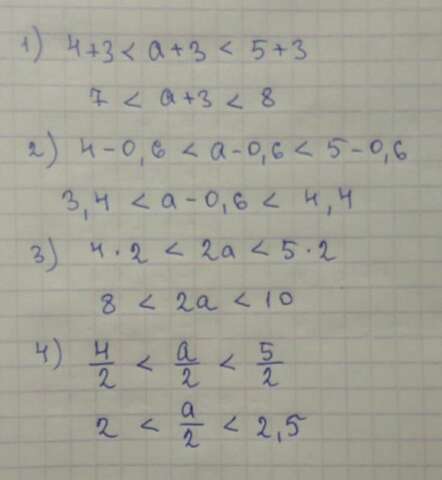 1) 4+3 < a+3 < 5+3
7 < a+3 < 8
2) 4-0,6 < a-0,6 < 5-0,6
3,4 < a-0,6 < 4,4
3) 4·2 < 2a < 5·2
8 < 2a < 10
4) 4/2 < a/2 < 5/2
2 < a/2 < 2,5